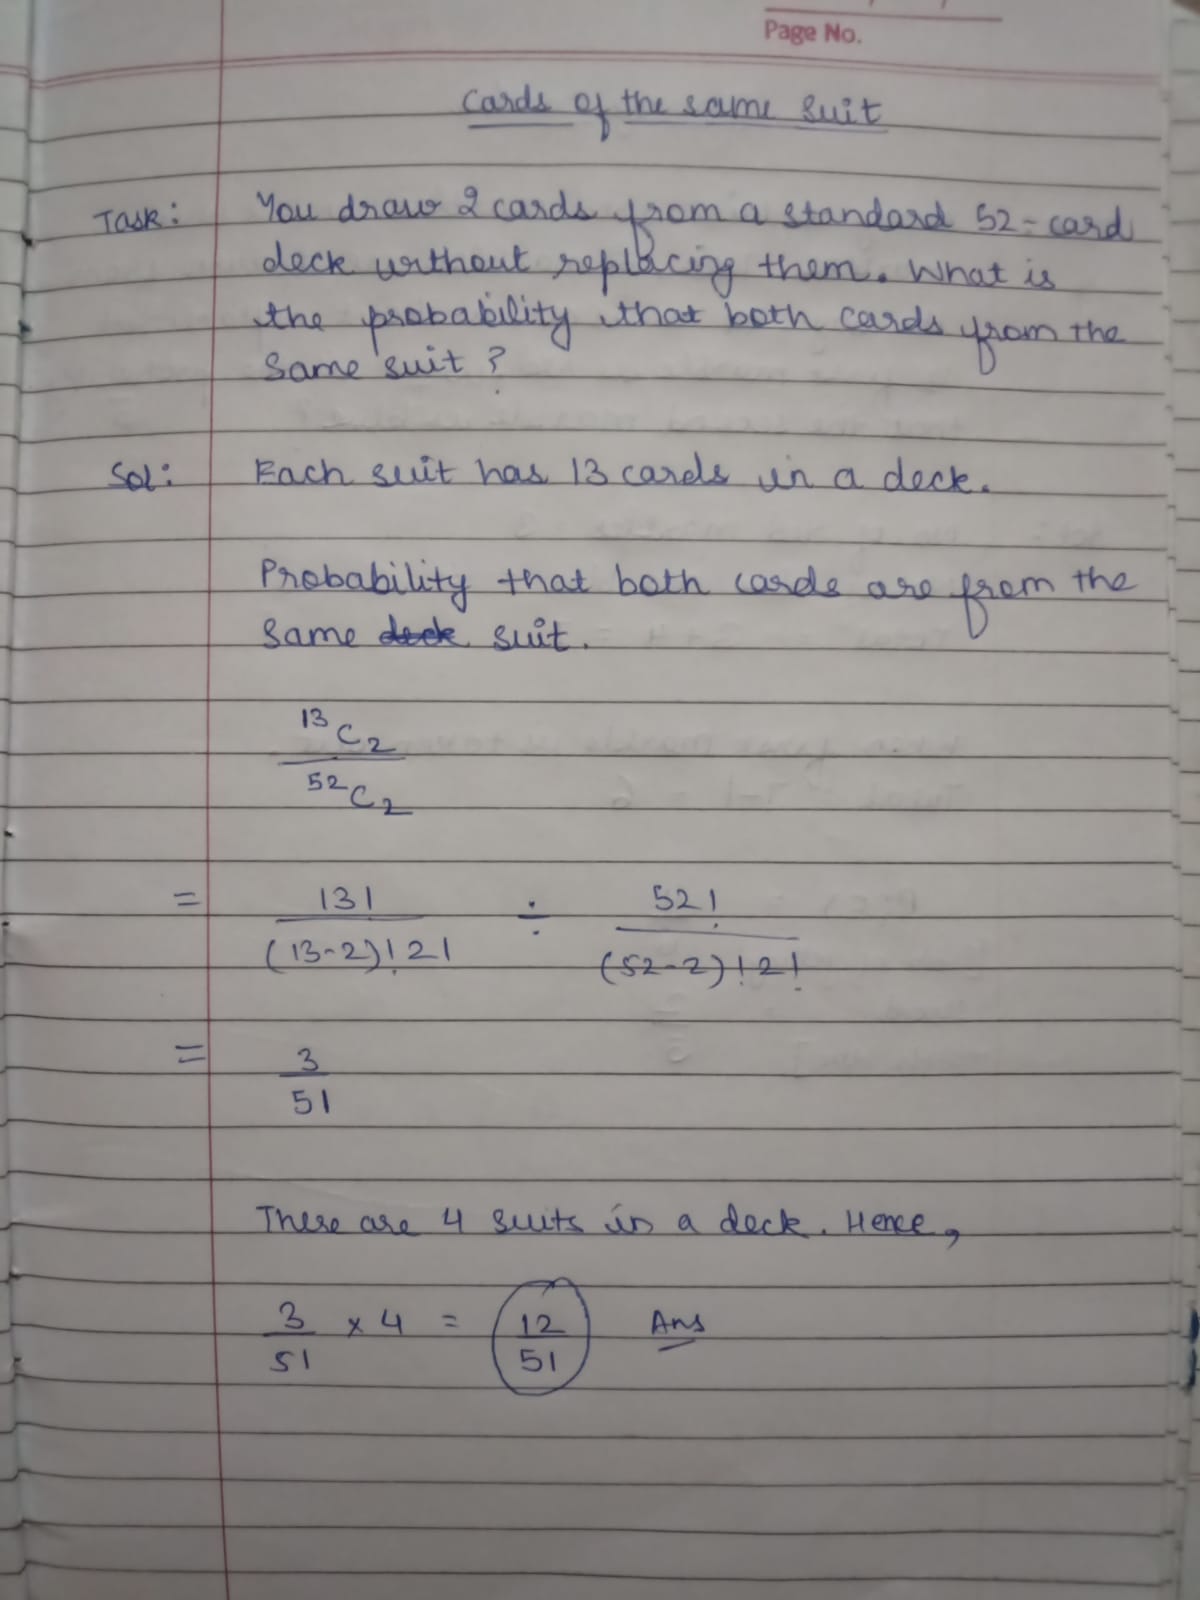 Page No.
Cards of the same suit
Task: You draw 2 cards from a standard 52-card
deck without replacing them. What is
the probability that both cards from the
same suit?
Sol: Each suit has 13 cards in a deck.
Probability that both cards are from the
same deck suit.
¹³C₂
⁵²C₂
= 13! ÷ 52!
(13-2)! 2! (52-2)! 2!
= 3
51
There are 4 suits in a deck. Hence,
3 × 4 = 12 Ans
51 51